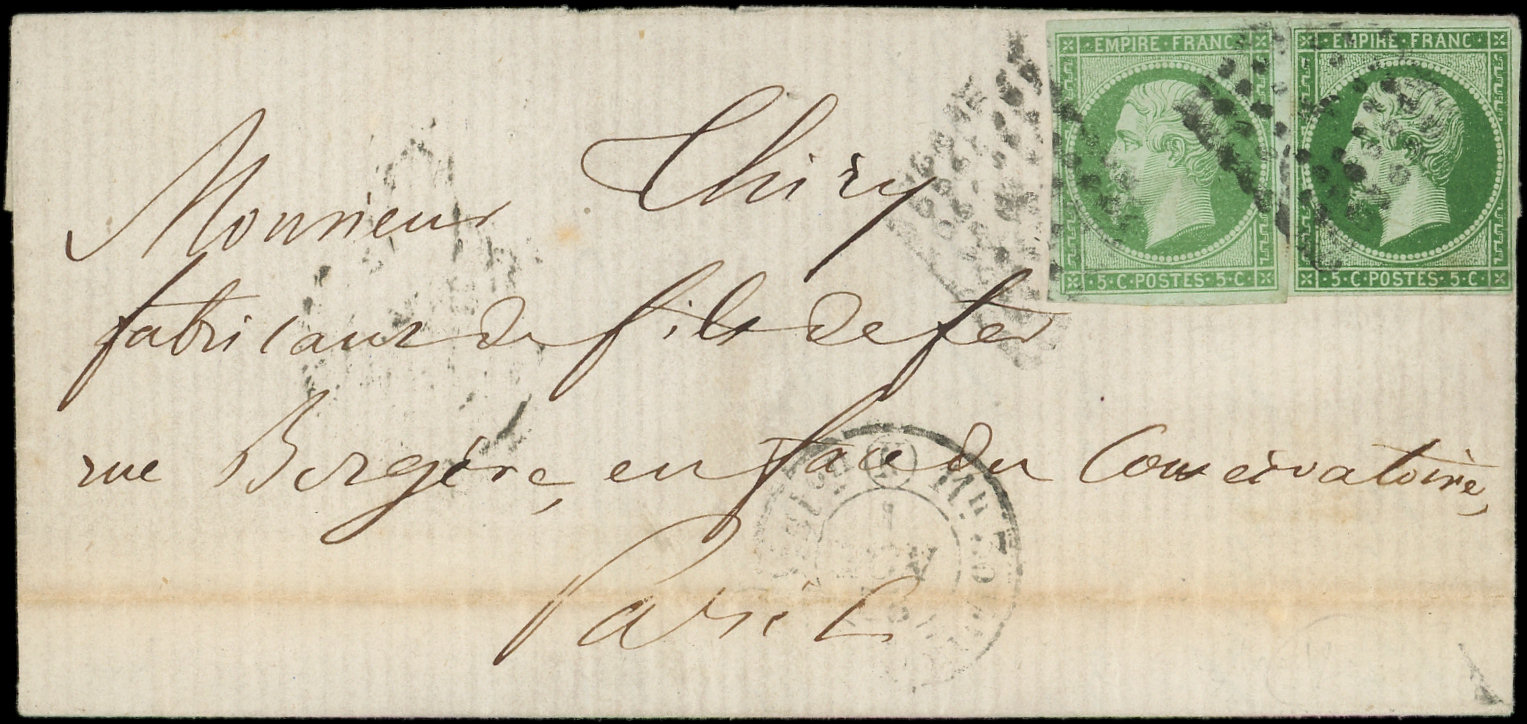 EMPIRE · FRANC ·
EMPIRE · FRANC ·
· 5 · C · POSTES · 5 · C ·
· 5 · C · POSTES · 5 · C ·
Monsieur Thiry
fabricant de fils de fer
rue Bergère, en face du Conservatoire,
Paris